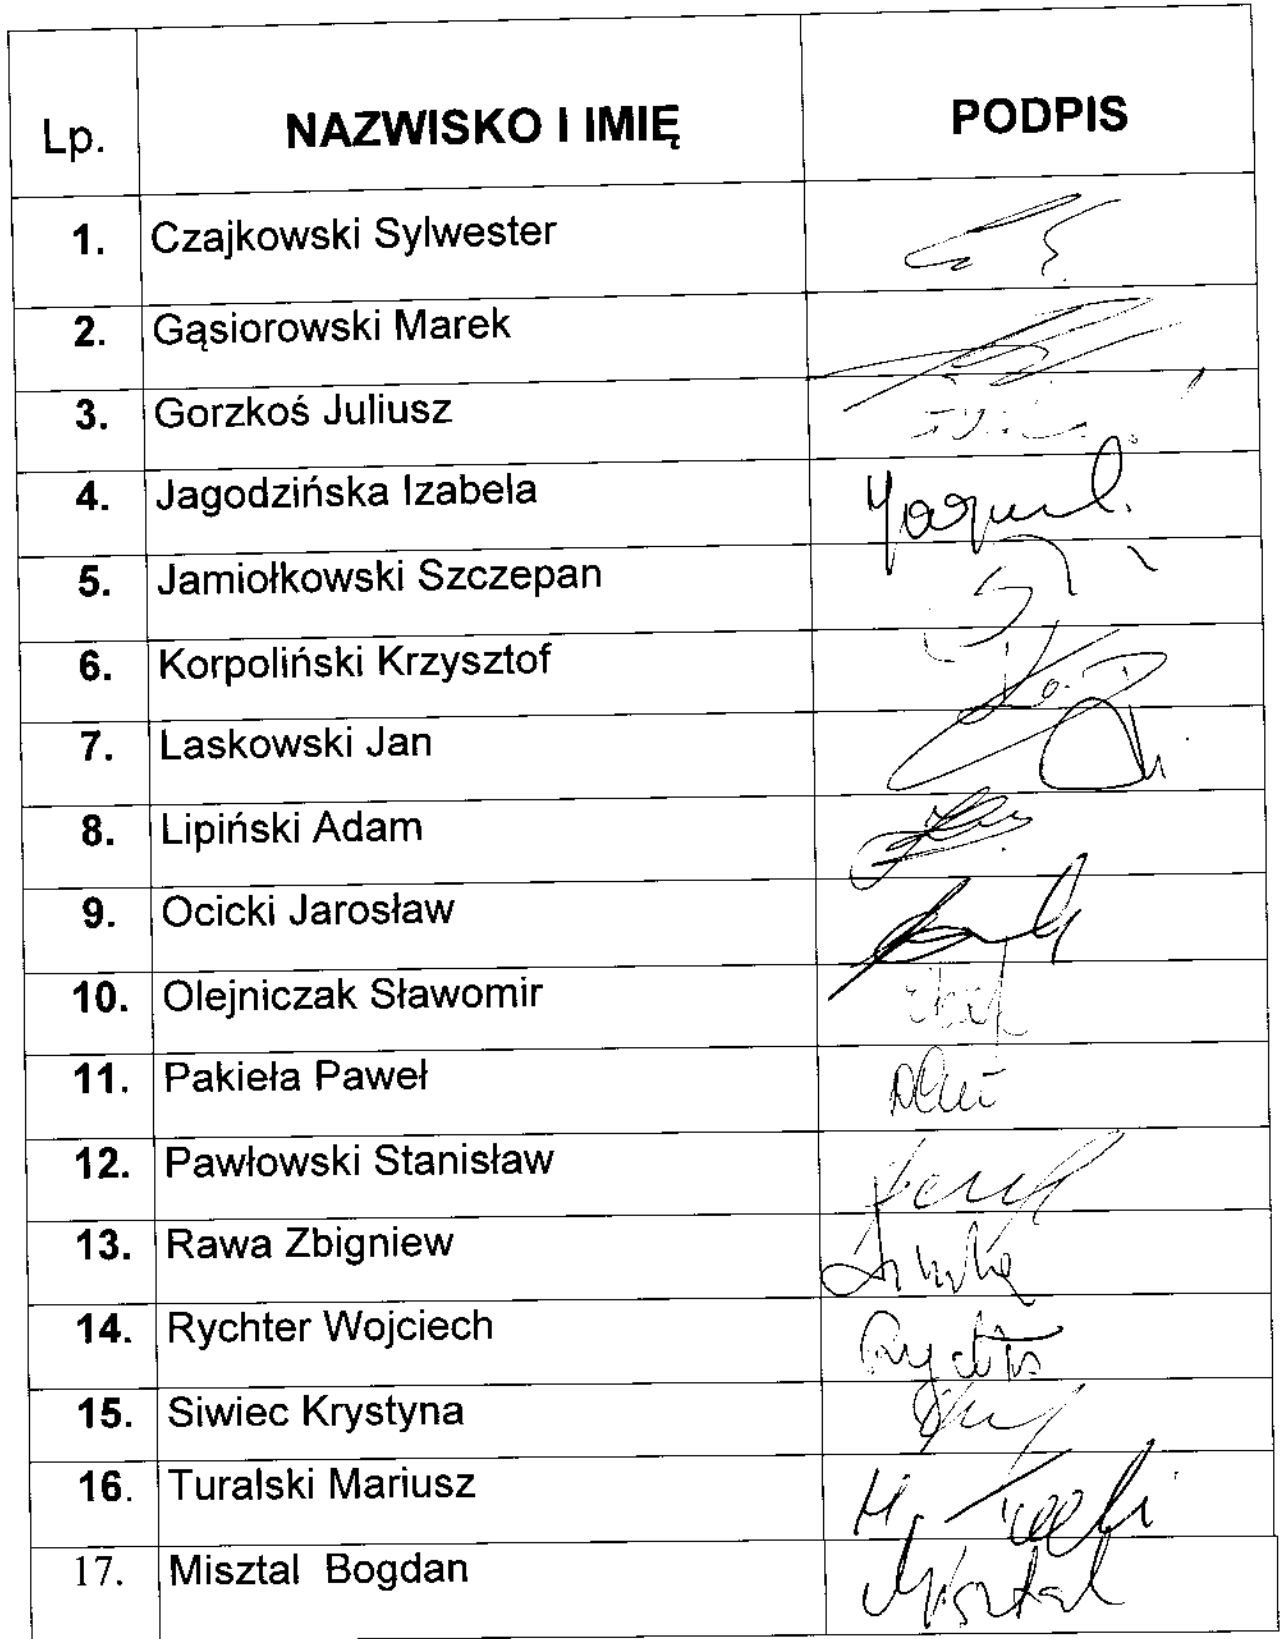 Lp. NAZWISKO I IMIĘ PODPIS
1. Czajkowski Sylwester
2. Gąsiorowski Marek
3. Gorzkoś Juliusz
4. Jagodzińska Izabela
5. Jamiołkowski Szczepan
6. Korpoliński Krzysztof
7. Laskowski Jan
8. Lipiński Adam
9. Ocicki Jarosław
10. Olejniczak Sławomir
11. Pakieła Paweł
12. Pawłowski Stanisław
13. Rawa Zbigniew
14. Rychter Wojciech
15. Siwiec Krystyna
16. Turalski Mariusz
17. Misztal Bogdan Misztal